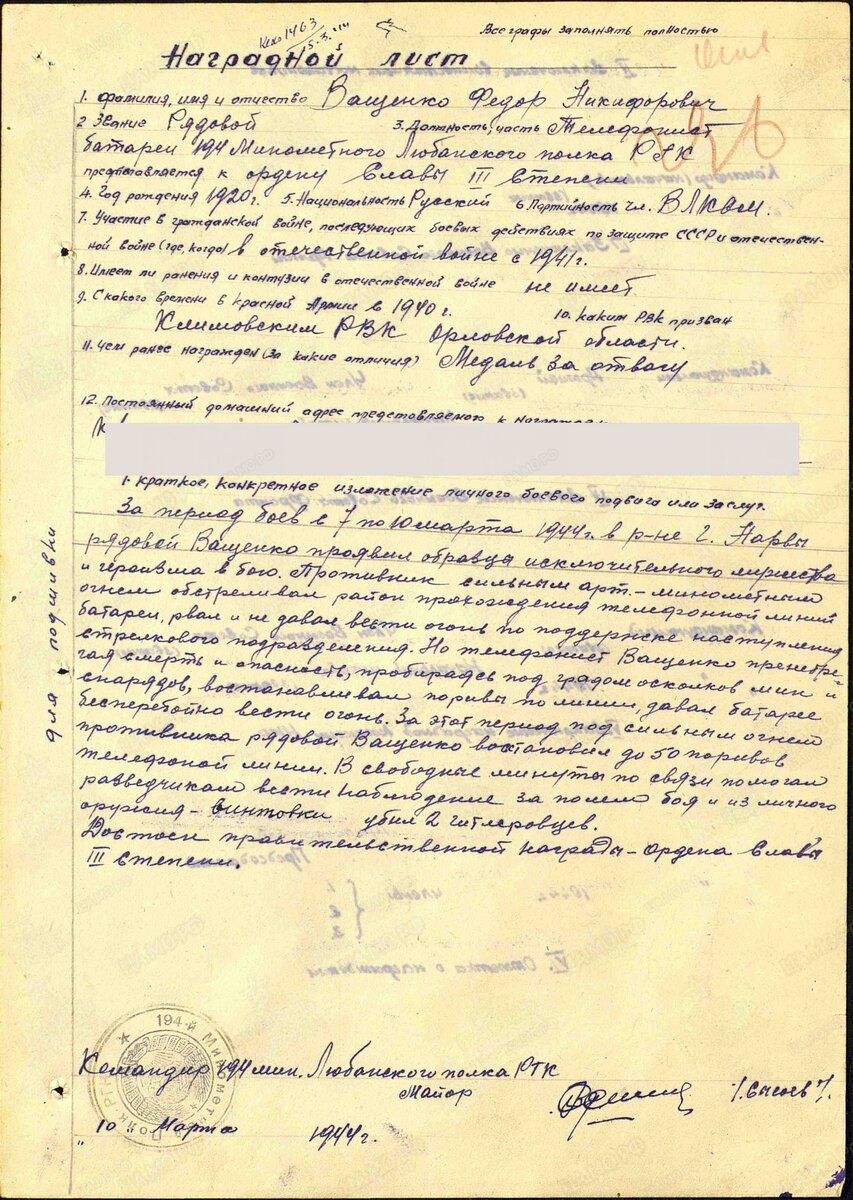 Все графы заполнять полностью
1463
15.3.
Наградной лист
1. Фамилия, имя и отчество Ващенко Федор Никифорович
2 Звание Рядовой 3. Должность, часть Телефонист
батареи 194 Минометного Любанского полка РГК
представляется к ордену Славы III Степени
4. Год рождения 1920г. 5. Национальность Русский 6. Партийность чл. ВЛКСМ.
7. Участие в гражданской войне, последующих боевых действиях по защите СССР и отечествен-
ной войне (где, когда) в отечественной войне с 1941г.
8. Имеет ли ранения и контузии в отечественной войне не имеет
9. С какого времени в Красной Армии с 1940г. 10. каким РВК призван
Климовским РВК Орловской области.
11. Чем ранее награжден (за какие отличия) Медаль за отвагу
12. Постоянный домашний адрес представляемого к
1. Краткое, конкретное изложение личного боевого подвига или заслуг.
За период боев с 7 по 10 марта 1944г. в р-не г. Нарвы
рядовой Ващенко проявил образцы исключительного мужества
и героизма в бою. Противник сильным арт.-минометным
огнем обстреливал район прохождения телефонной линии
батареи, рвал и не давал вести огонь по поддержке наступления
стрелкового подразделения. Но телефонист Ващенко пренебре-
гая смерть и опасность, пробираясь под градом осколков мин и
снарядов, востанавливал порывы по линии, давал батарее
бесперебойно вести огонь. За этот период под сильным огнем
противника рядовой Ващенко востановил до 50 порывов
телефоной линии. В свободные минуты по связи помогал
разведчикам вести наблюдение за полем боя и из личного
оружия - винтовки убил 2 гитлеровцев.
Достоен правительственной награды - Ордена Славы
III Степени.
для подшивки
194-й Минометн
Полк РГК
Командир 194 мин. Любанского полка РГК
Майор
/Сысоев/.
"10" Марта 1944г.